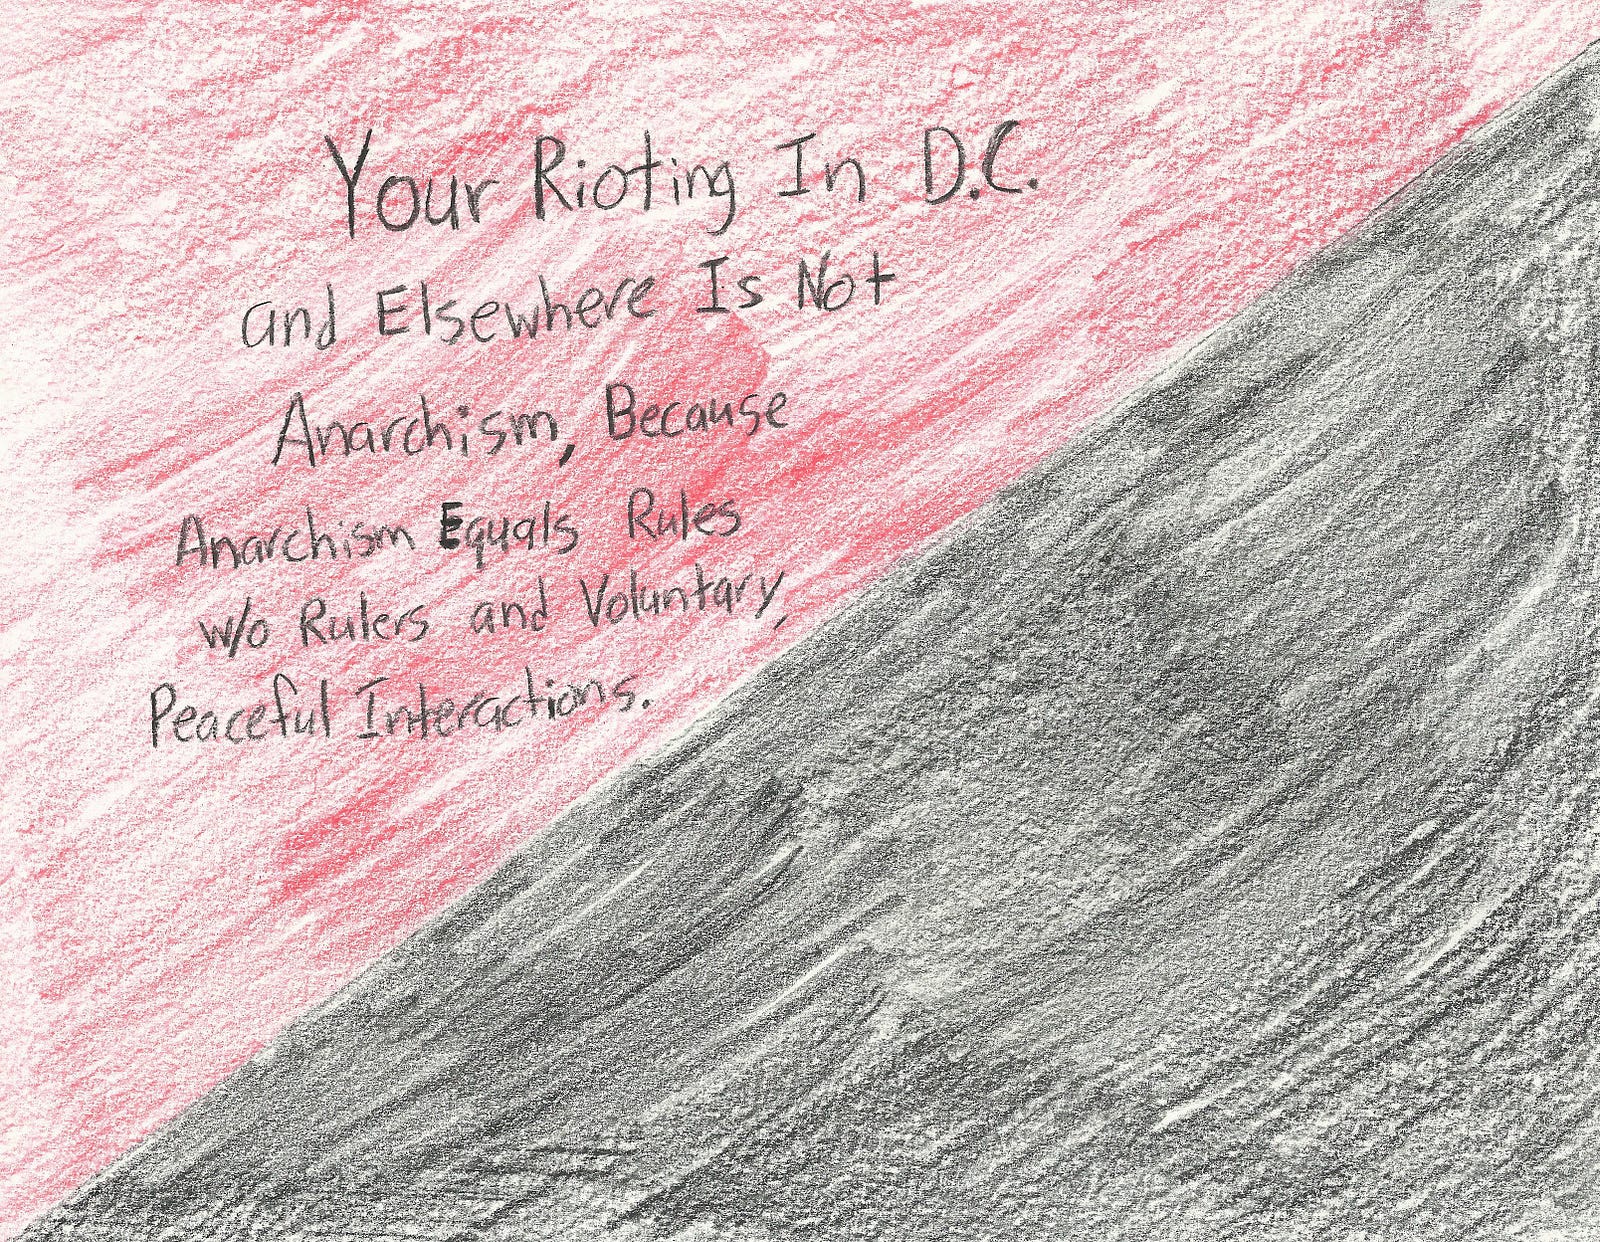 Your Rioting In D.C.
and Elsewhere Is Not
Anarchism, Because
Anarchism Equals Rules
w/o Rulers and Voluntary,
Peaceful Interactions.